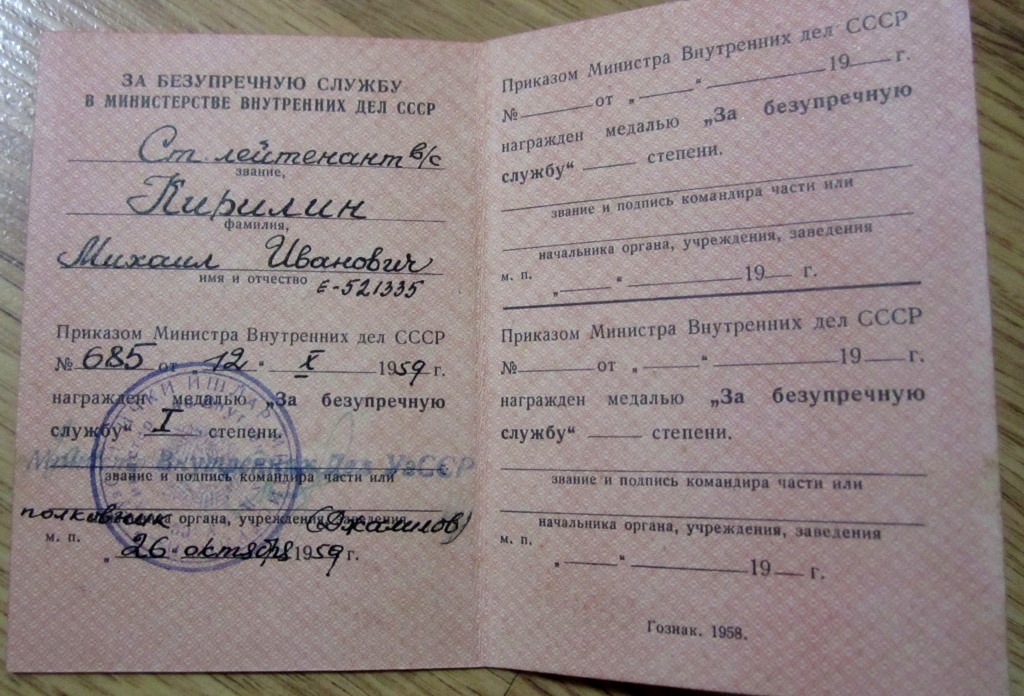 ЗА БЕЗУПРЕЧНУЮ СЛУЖБУ
В МИНИСТЕРСТВЕ ВНУТРЕННИХ ДЕЛ СССР
Ст. лейтенант в/с
звание,
Кирилин
фамилия,
Михаил Иванович
имя и отчество Е-521335
Приказом Министра Внутренних дел СССР
№ 685 от „12“ X 1959 г.
награжден медалью „За безупречную
службу“ I степени.
Министр Внутренних Дел УзССР
звание и подпись командира части или
полковник органа, учреждения, заведения (Джалилов)
м. п. „26“ октября 1959 г.
Приказом Министра Внутренних дел СССР
№ от „ “ 19 г.
награжден медалью „За безупречную
службу“ степени.
звание и подпись командира части или
начальника органа, учреждения, заведения
м. п. „ “ 19 г.
Приказом Министра Внутренних дел СССР
№ от „ “ 19 г.
награжден медалью „За безупречную
службу“ степени.
звание и подпись командира части или
начальника органа, учреждения, заведения
м. п. „ “ 19 г.
Гознак. 1958.